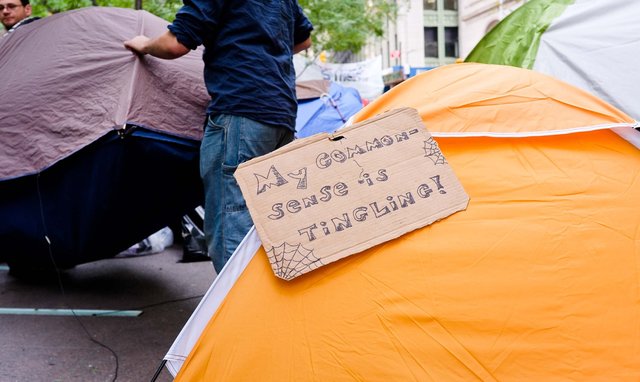 MY COMMON-
SENSE is
TiNGLiNG!